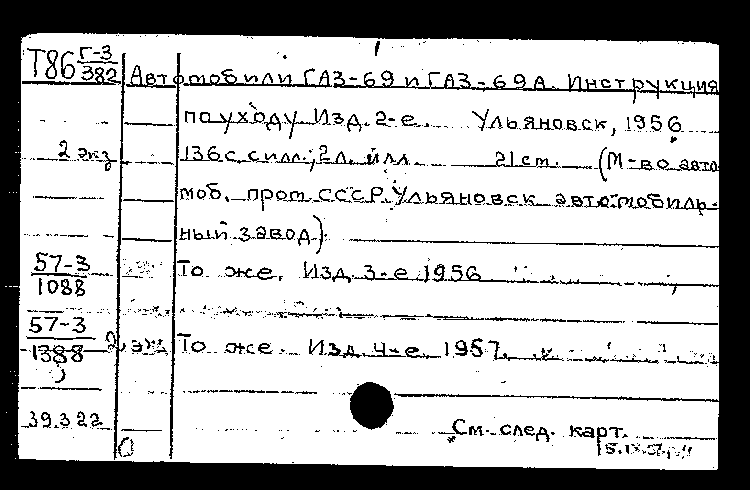 Т86 Г-3
382 Автомобили ГАЗ-69 и ГАЗ-69А. Инструкция
по уходу Изд. 2-е. Ульяновск, 1956
2 экз 136 с. с илл.; 2 л. илл. 21 см. (М-во авто
моб. пром СССР. Ульяновск автомобиль-
ный завод).
57-3
1088 То же. Изд. 3-е 1956
57-3
1388 2 экз То же. Изд. 4-е. 1957.
39.322
См. след. карт.
0